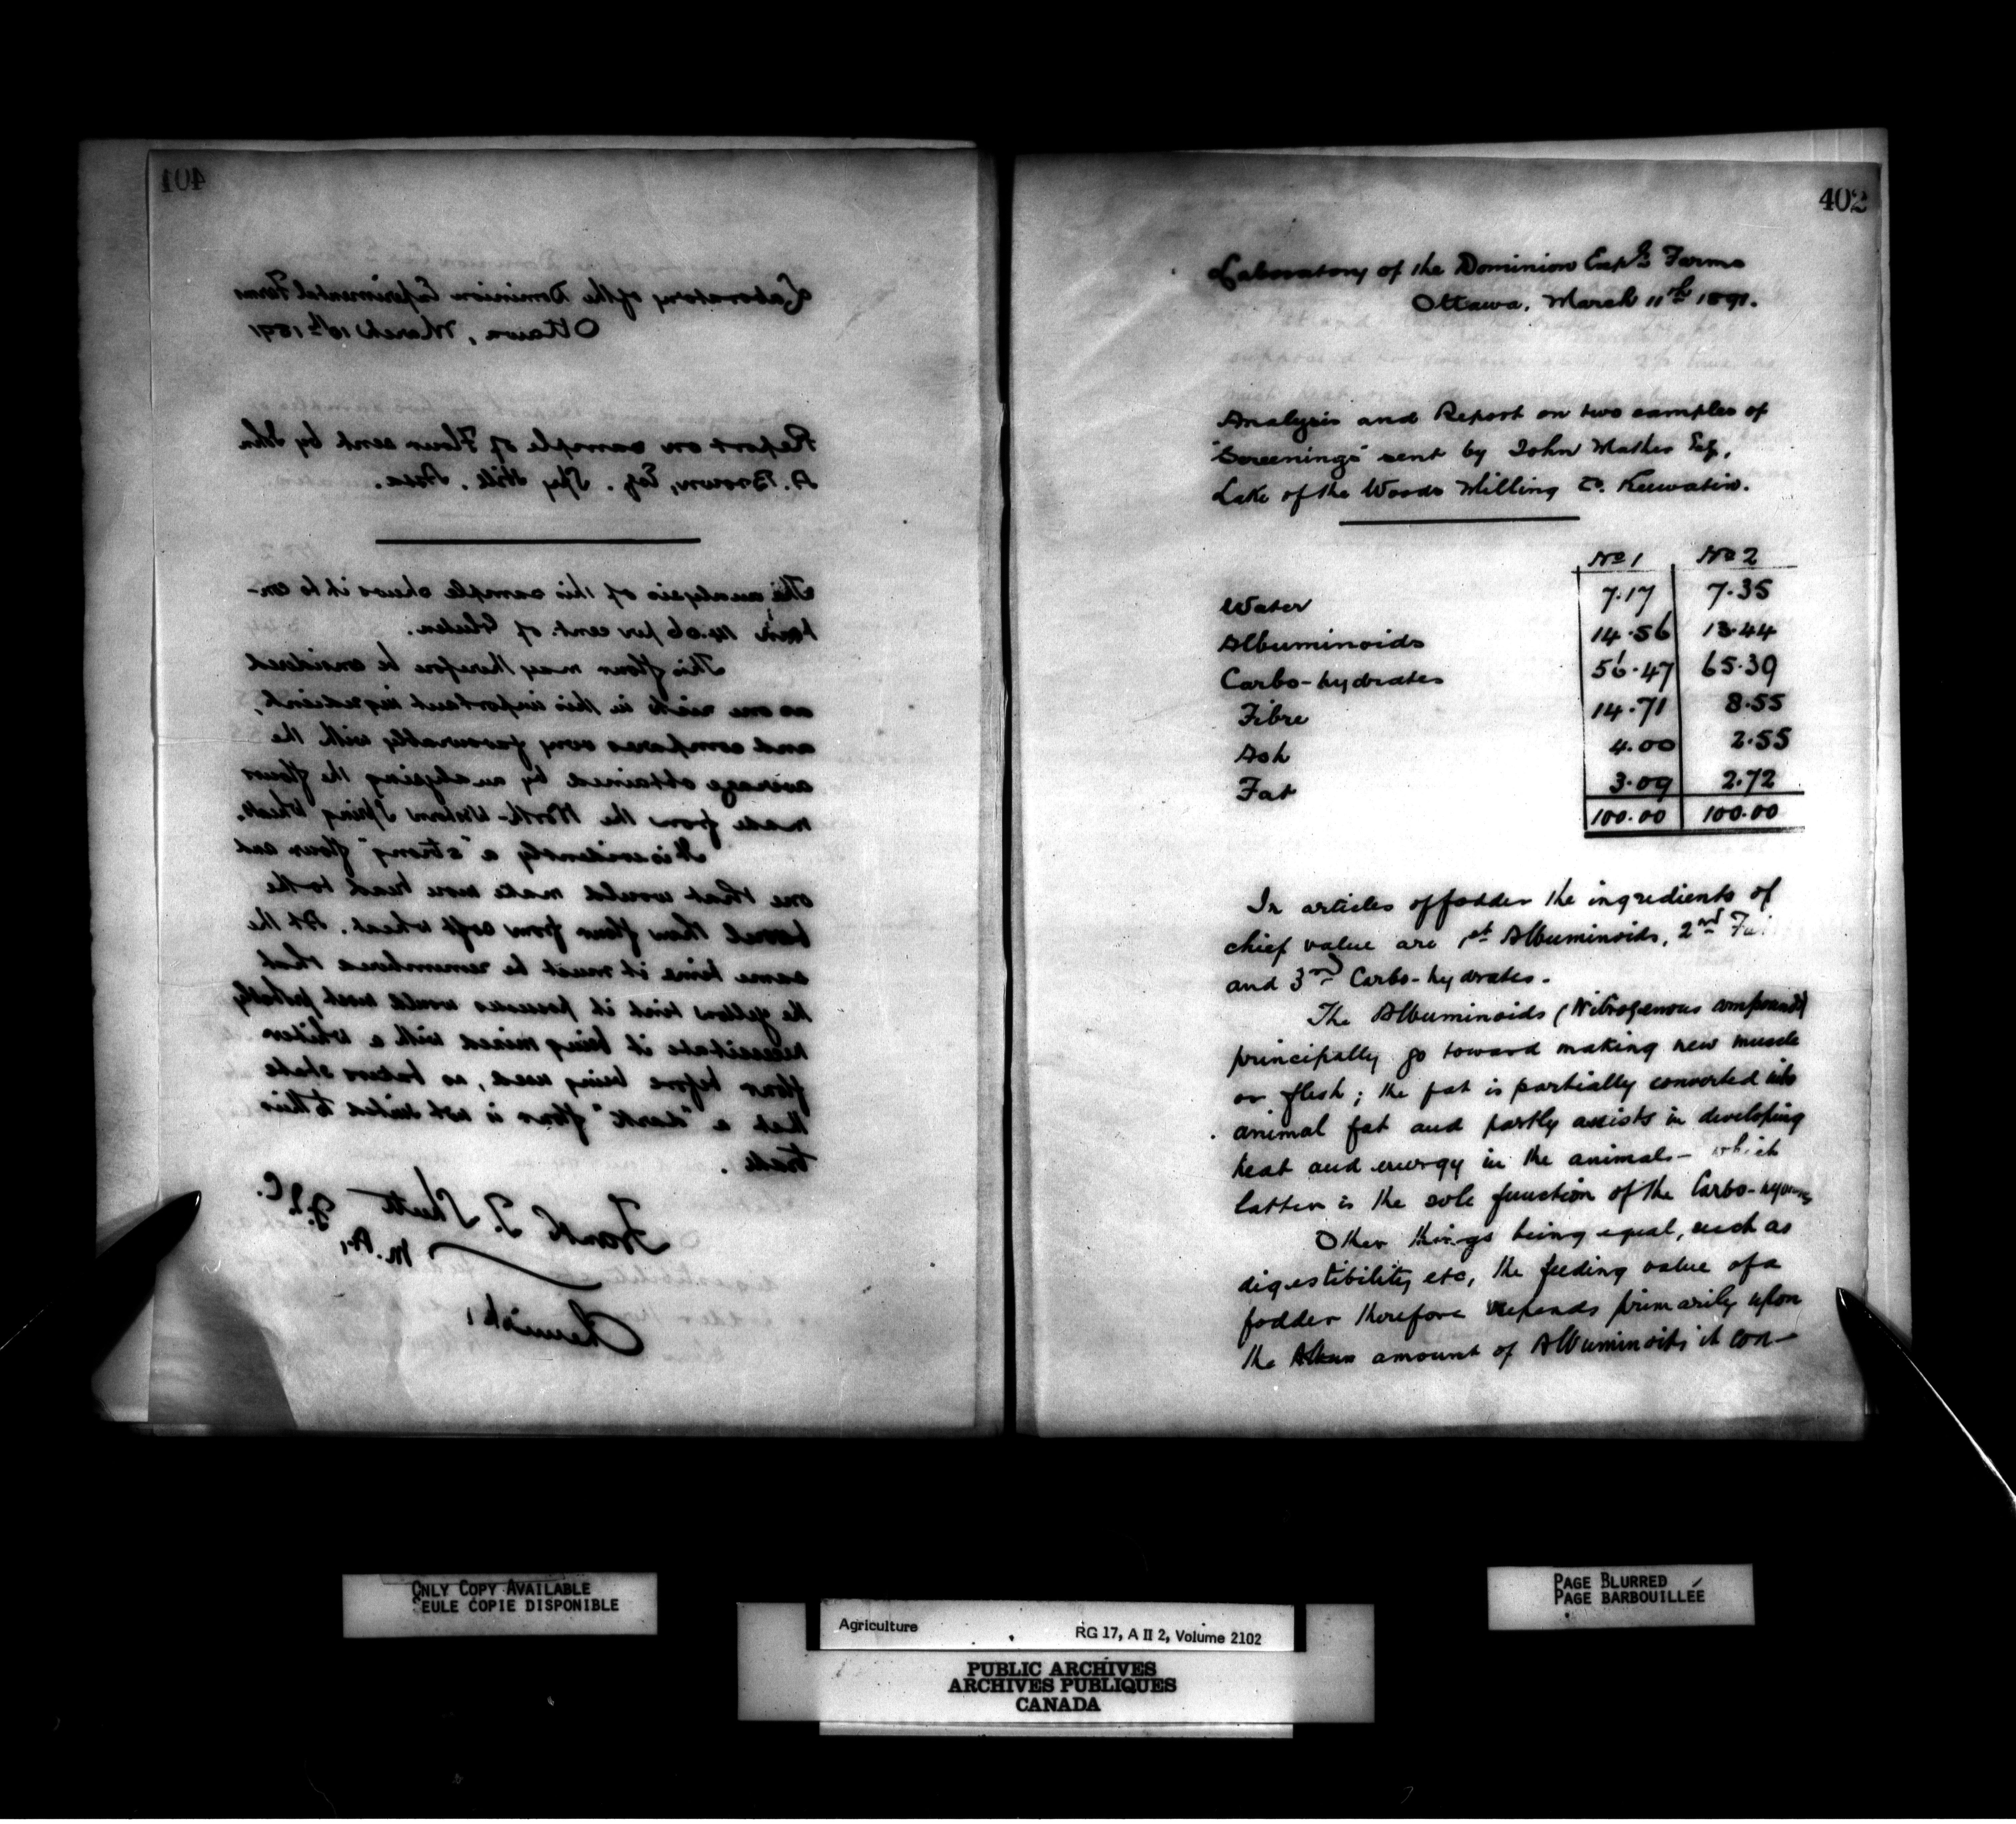 401
Laboratory of the Dominion Experimental Farms
Ottawa, March 10th 1891
Report on sample of Flour sent by John
A. Brown, Esq. Spy Hill. Assa.
The analysis of this sample shews it to con-
tain 14.06 per cent. of Gluten.
This flour may therefore be considered
as one rich in this important ingredient,
and compares very favourably with the
average obtained by analysing the flour
made from the North-Western Spring Wheat.
It is evidently a "strong" flour and
one that would make more bread to the
barrel than flour from soft wheat. At the
same time it must be remembered that
the yellow tint it possesses would most probably
necessitate it being mixed with a whiter
flour before being used, as bakers state
that a "dark" flour is not suited to their
trade.
Frank T. Shutt
M.A., F.I.C.
Chemist,
402
Laboratory of the Dominion Exp'l Farms
Ottawa, March 11th 1891.
Analysis and Report on two samples of
"Screenings" sent by John Mather Esq,
Lake of the Woods Milling Co. Keewatin.
No 1 No 2
Water 7.17 7.35
Albuminoids 14.56 13.44
Carbo-hydrates 56.47 65.39
Fibre 14.71 8.55
Ash 4.00 2.55
Fat 3.09 2.72
100.00 100.00
In articles of fodder the ingredients of
chief value are 1st Albuminoids, 2nd
and 3rd Carbo-hydrates.
The Albuminoids (Nitrogenous compounds)
principally go toward making new muscle
or flesh; the fat is partially converted into
animal fat and partly assists in developing
heat and energy in the animal - which
latter is the sole function of the Carbo-hydrates
Other things being equal, such as
digestibility etc, the feeding value of a
fodder therefore depends primarily upon
the amount of Albuminoids it con-
ONLY COPY AVAILABLE
SEULE COPIE DISPONIBLE
PAGE BLURRED
PAGE BARBOUILLÉE
Agriculture RG 17, A II 2, Volume 2102
PUBLIC ARCHIVES
ARCHIVES PUBLIQUES
CANADA